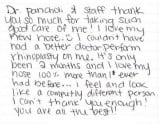 Dr. Panchal & staff thank
you so much for taking such
good care of me! I love my
new nose. I couldn't have
had a better doctor perform
rhinoplasty on me. It's only
been 3 months and I love my
nose 100% more than I ever
had before... I feel and look
like a completely different person.
I can't thank you enough!
you are all the best!